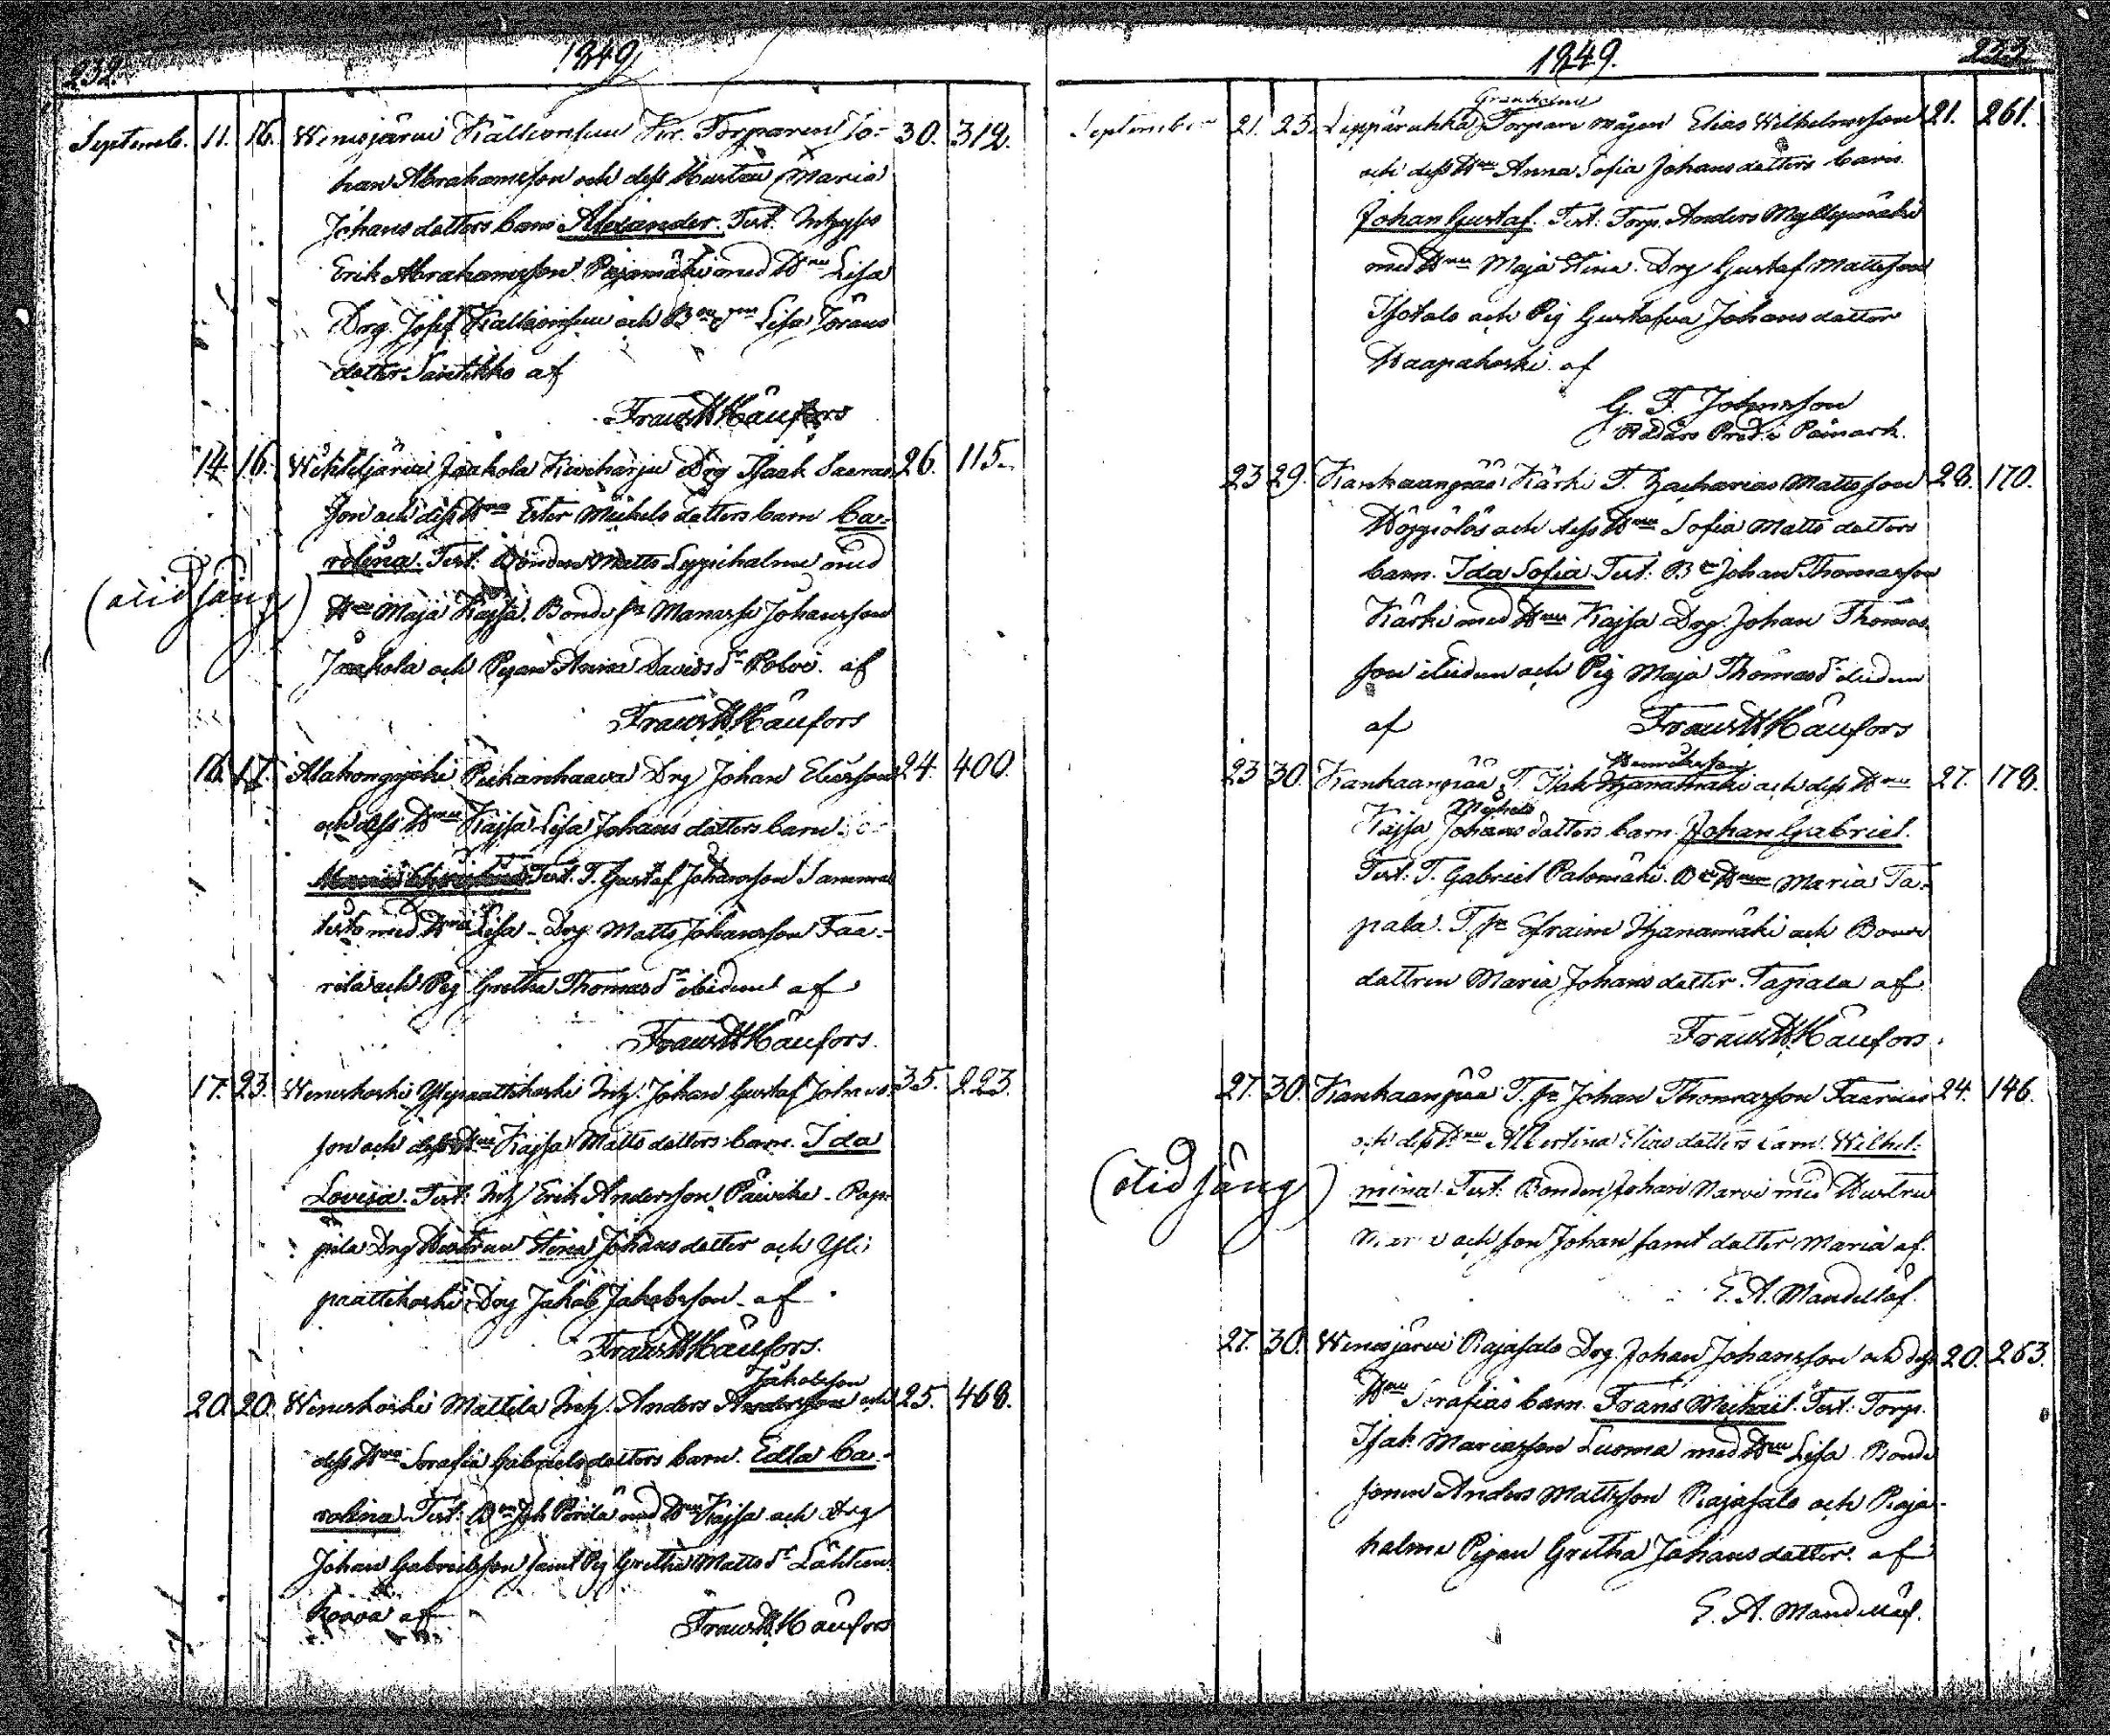 232. 1849
Septemb. 11. 16. Wenesjärvi Kallionsuu Torparen Jo- 30. 319.
han Abrahamsson och dess Hustru Maria
Johansdotters barn Alexander. Test. Inhyses
Erik Abrahamsson Pajamäki med Hru Lisa
Drg. Josef Kallionsuu och Lisa Görans
dotter Santikko af
Frans H Käufors
14. 16. Wihteljärvi Jaakola Karharju Drg Isaak Isaacs 26. 115.
son och dess Hru Ester Michelsdotters barn Ca-
rolina. Test: Bonden Matts Leppihalme med
(otidsäng)
Hru Maja Kajsa. Bonde sn Manasse Johansson
Jaakola och Pigan Anna Davids dr Polvi. af
Frans H Käufors
16. 17. Alahongojoki Pukanhaava Drg Johan Eliasson 24. 400.
och dess Hru Kajsa Lisa Johans dotters barn
Test. T. Gustaf Johansson Samma
med Hru Lisa - Drg Matts Johansson Faa-
rila och Pig Gretha Thomas dr ibidem af
Frans H Käufors.
17. 23. Weneskoski Ylipaattikoski Inh. Johan Gustaf Johans 35. 223.
son och dess Hru Kajsa Matts dotters barn. Ida
Lovisa. Test: Inh Erik Andersson Päivike - Pap-
pila Drg Hustrun Stina Johans dotter och Yli
paattikoski Drg Jakob Jakobsson - af
Frans H Käufors.
Jakobsson
20. 20. Weneskoski Mattila Inh. Anders Andersson och 25. 468.
dess Hru Serafia Gabriels dotters barn. Edla Ca-
rolina. Test: Bn Joh Perilä med Hru Kajsa och Drg
Johan Gabrielsson samt Pig Gretha Matts dr Lähteen
korva af Frans H Käufors
1849. 233
Granholm
September 21. 23. Leppäruhka Torpare mågen Elias Wilhelmsson 21. 261.
och dess Hru Anna Sofia Johans dotters barn
Johan Gustaf. Test: Torp. Anders Myllymäki
med Hru Maja Stina. Drg Gustaf Mattsson
Isotalo och Pig Gustafva Johans dotter
Waapakoski. af
G. F. Johnsson
Pred. i Påmark.
23 29. Kankaanpää Kärki T. Zacharias Mattsson 28. 170.
och dess Hru Sofia Matts dotters
barn. Ida Sofia. Test: Bn Johan Thomasson
Kärki med Hru Kajsa Drg. Johan Thomas
son ibidem och Pig Maja Thomas dr ibidem
af Frans H Käufors
23 30. Kankaanpää T. Isak Hjanamäki och dess Hru 27. 178.
Michels
Kajsa Johans dotters barn. Johan Gabriel.
Test: T. Gabriel Palomäki. Bn Hru Maria Ta-
pala. T. sn Efraim Hjanamäki och Bonde
dottren Maria Johans dotter. Tapala af
Frans H Käufors.
27. 30. Kankaanpää T. sn Johan Thomasson Faarinen 24. 146.
och dess Hru Albertina Elias dotters barn. Wilhel-
(otidsäng)
mina. Test: Bonden Johan Narvi med Hustru
Maria och son Johan samt dotter Maria af.
E. A. Mandellöf.
27. 30. Wenesjärvi Rajasalo Drg. Johan Johansson och dess 20. 263.
Hru Serafias barn. Frans Michael. Test: Torp.
Isak Mariasson Luoma med Hru Lisa. Bonde
sonen Anders Mattsson Rajasalo och Raja-
halme Pigan Gretha Johans dotter. af
E. A. Mandellöf.